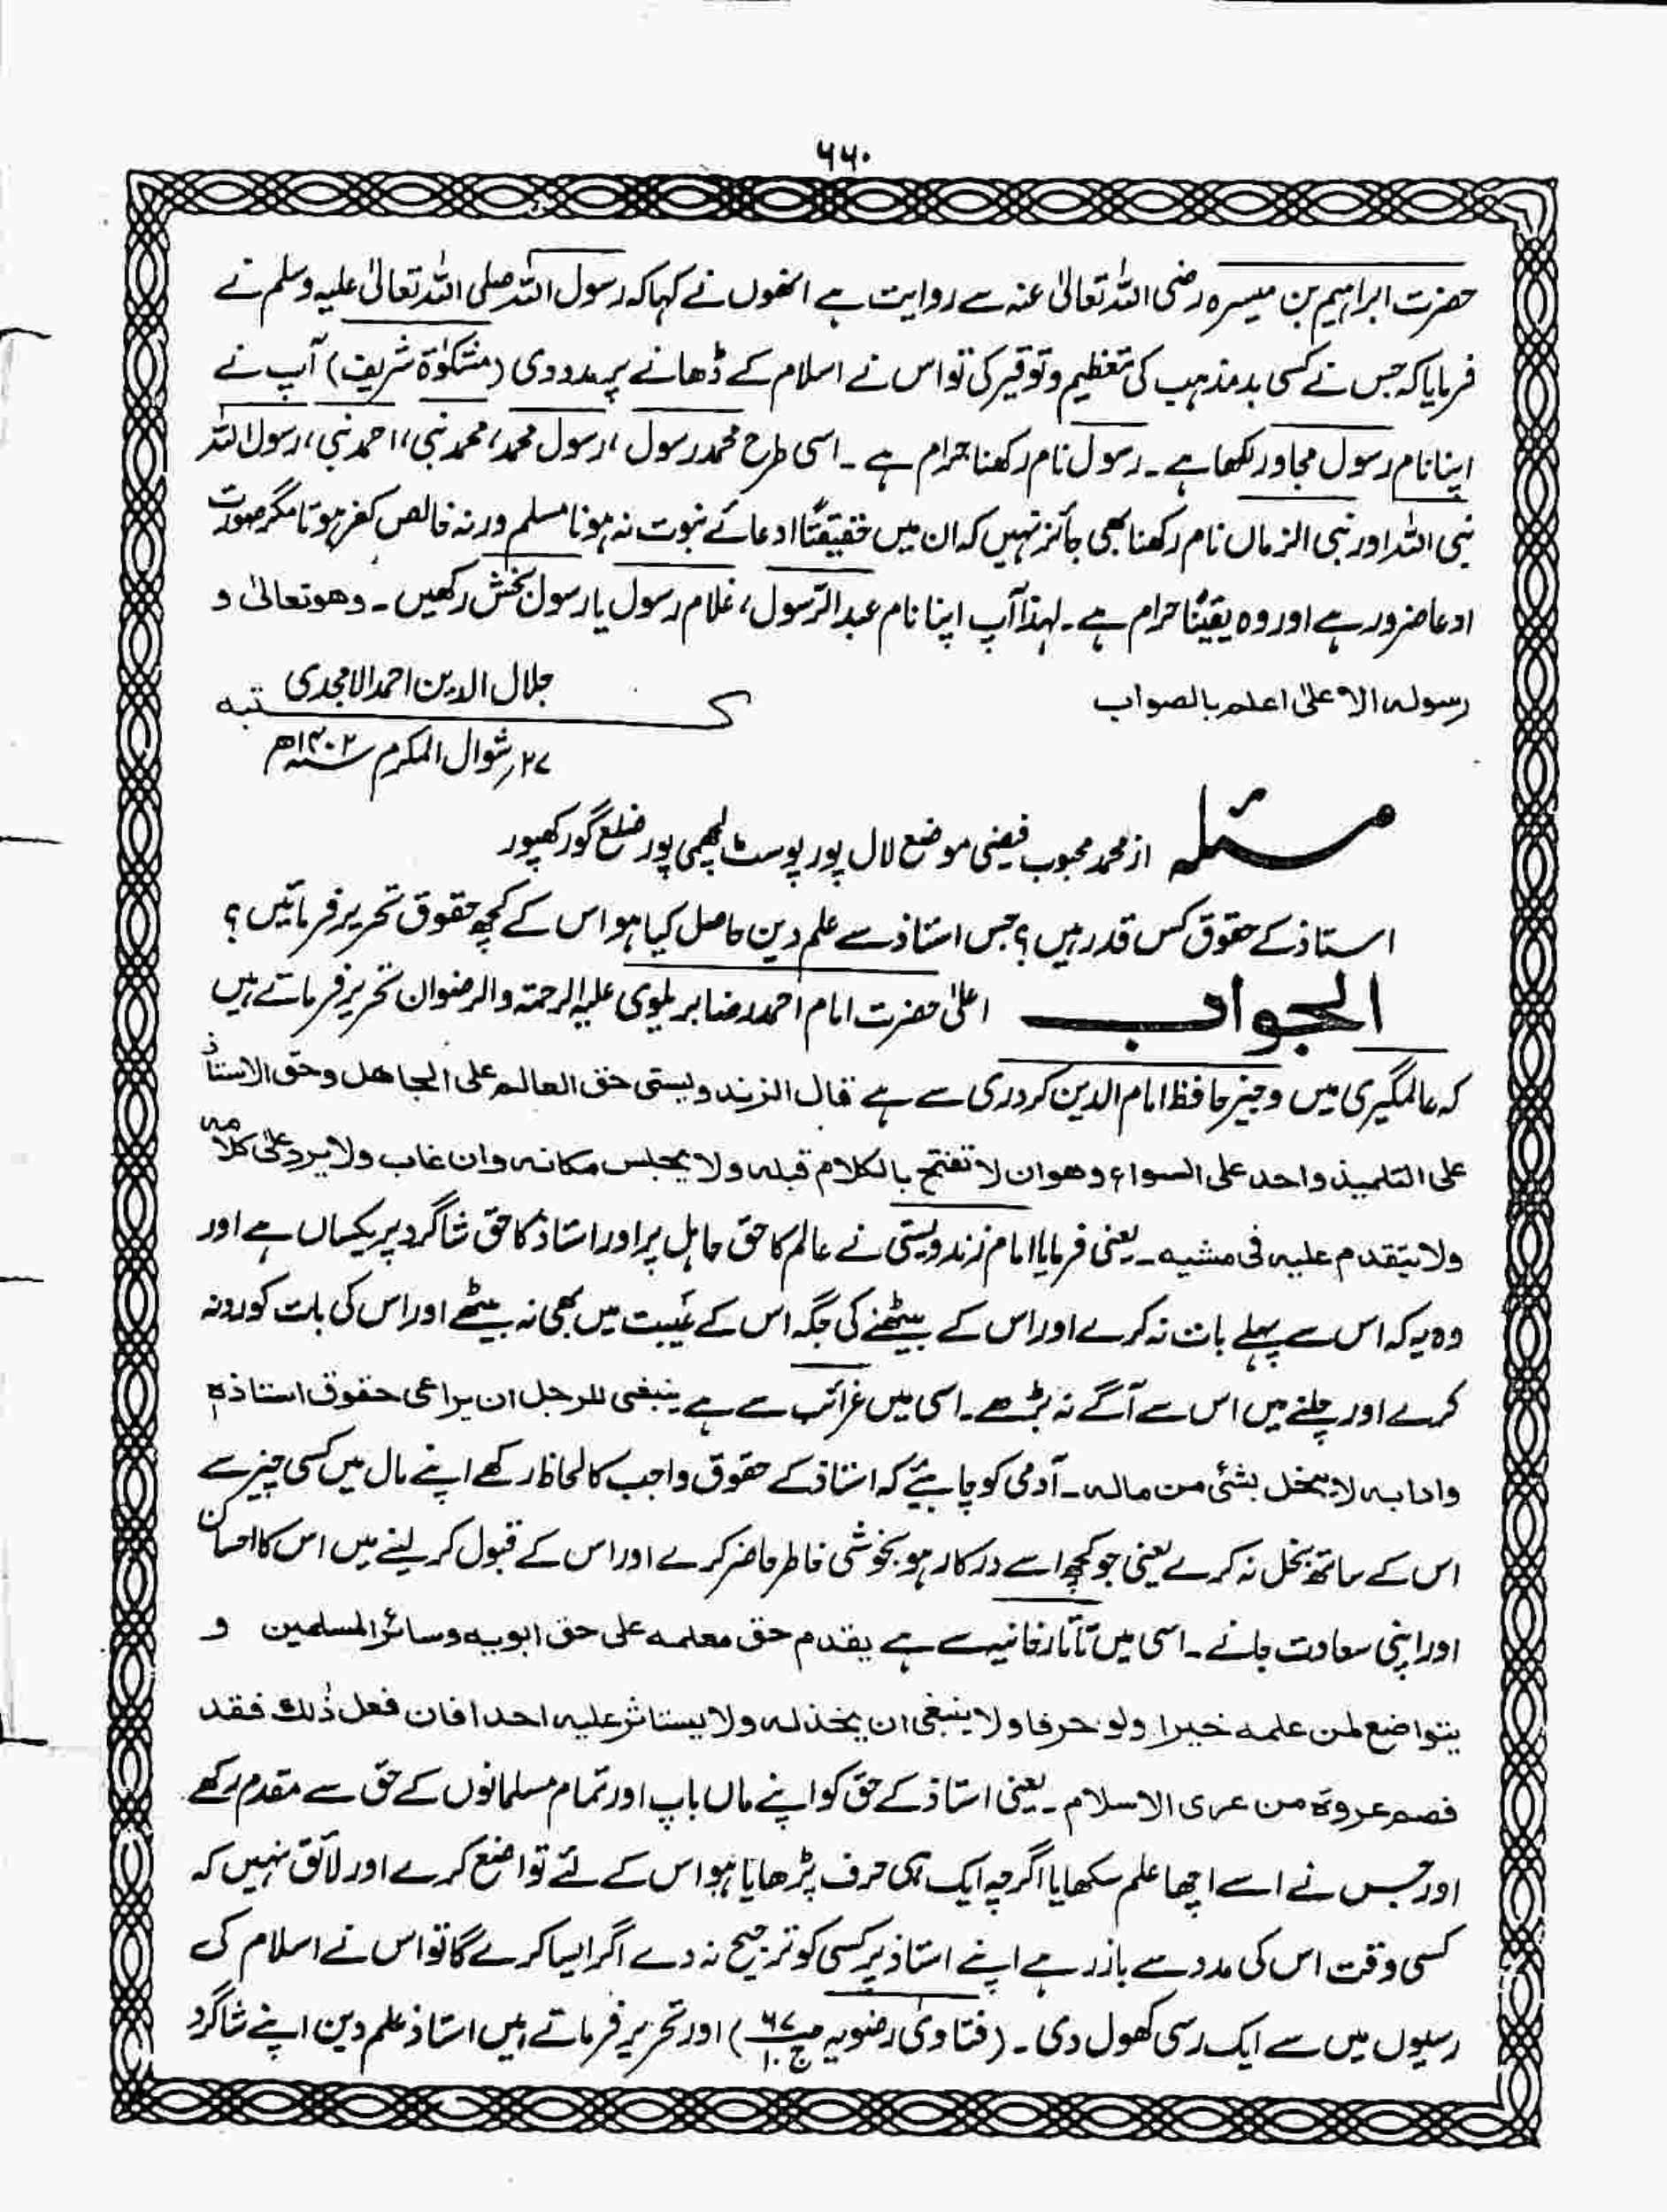 ۶۶۰
حضرت ابراہیم بن میسرہ رضی اللہ تعالیٰ عنہ سے روایت ہے انھوں نے کہا کہ رسول اللہ صلی اللہ تعالیٰ علیہ وسلم نے
فرمایا کہ جس نے کسی بد مذہب کی تعظیم و توقیر کی تو اس نے اسلام کے ڈھانے پر مدد دی (مشکوٰۃ شریف) آپ نے
اپنا نام رسول مجاور لکھا ہے۔ رسول نام رکھنا حرام ہے۔ اسی طرح محمد رسول، رسول محمد، محمد نبی، احمد نبی، رسول اللہ
نبی اللہ اور نبی الزماں نام رکھنا بھی جائز نہیں کہ ان میں حقیقتًا ادعائے نبوت نہ ہونا مسلم ورنہ خالص کفر ہوتا مگر صورت
ادعا ضرور ہے اور وہ یقینًا حرام ہے۔ لہذا آپ اپنا نام عبد الرّسول، غلام رسول یا رسول بخش رکھیں۔ وھو تعالیٰ و
رسولہ الاعلیٰ اعلم بالصواب
کتبہ جلال الدین احمد الامجدی
۲۷؍ شوال المکرم ۱۴۰۲ھ
مسئلہ از محمد محبوب فیضی موضع لال پور پوسٹ لچھمی پور ضلع گورکھپور
استاذ کے حقوق کس قدر ہیں؟ جس استاذ سے علم دین حاصل کیا ہو اس کے کچھ حقوق تحریر فرمائیں؟
الجواب اعلیٰ حضرت امام احمد رضا بریلوی علیہ الرحمۃ والرضوان تحریر فرماتے ہیں
کہ عالمگیری میں وجیز حافظ امام الدین کردری سے ہے قال الزندویستی حق العالم علی الجاھل وحق الاستاذ
علی التلمیذ واحد علی السواء وھو ان لا تفتح بالکلام قبلہ ولا یجلس مکانہ وان غاب ولا یرد علیٰ کلامہ
ولا یتقدم علیہ فی مشیہ۔ یعنی فرمایا امام زندویستی نے عالم کا حق جاہل پر اور استاذ کا حق شاگرد پر یکساں ہے اور
وہ یہ کہ اس سے پہلے بات نہ کرے اور اس کے بیٹھنے کی جگہ اس کے غیبت میں بھی نہ بیٹھے اور اس کی بات کو رد نہ
کرے اور چلنے میں اس سے آگے نہ بڑھے۔ اسی میں غرائب سے ہے ینبغی للرجل ان یراعی حقوق استاذہ
وادابہ لا یبخل بشئی من مالہ۔ آدمی کو چاہیئے کہ استاذ کے حقوق واجب کا لحاظ رکھے اپنے مال میں کسی چیز سے
اس کے ساتھ بخل نہ کرے یعنی جو کچھ اسے درکار ہو بخوشی خاطر حاضر کرے اور اس کے قبول کر لینے میں اس کا احسان
اور اپنی سعادت جانے۔ اسی میں تاتارخانیہ سے ہے یقدم حق معلمہ علی حق ابویہ وسائر المسلمین و
یتواضع لمن علمہ خیرا ولو حرفا ولا ینبغی ان یخذلہ ولا یستاثر علیہ احدا فان فعل ذٰلک فقد
فصم عروۃ من عری الاسلام۔ یعنی استاذ کے حق کو اپنے ماں باپ اور تمام مسلمانوں کے حق سے مقدم رکھے
اور جس نے اسے اچھا علم سکھایا اگرچہ ایک ہی حرف پڑھایا ہو اس کے لئے تواضع کرے اور لائق نہیں کہ
کسی وقت اس کی مدد سے باز رہے اپنے استاذ پر کسی کو ترجیح نہ دے اگر ایسا کرے گا تو اس نے اسلام کی
رسیوں میں سے ایک رسی کھول دی۔ (فتاویٰ رضویہ ج۱۰ ص۶۷) اور تحریر فرماتے ہیں استاذ علم دین اپنے شاگرد